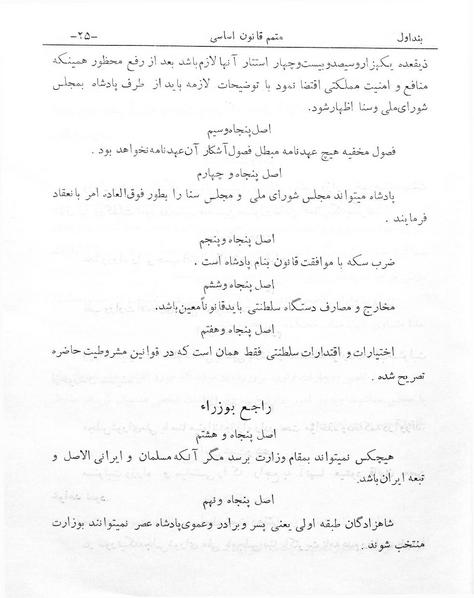 بند اول متمم قانون اساسی -۲۵-
ذیقعده یکهزاروسیصدوبیست‌وچهار استتار آنها لازم باشد بعد از رفع محظور همینکه
منافع و امنیت مملکتی اقتضا نمود با توضیحات لازمه باید از طرف پادشاه بمجلس
شورای‌ملی وسنا اظهارشود.
اصل پنجاه‌وسیم
فصول مخفیه هیچ عهدنامه مبطل فصول آشکار آن‌عهدنامه نخواهد بود .
اصل پنجاه و چهارم
پادشاه میتواند مجلس شورای ملی و مجلس سنا را بطور فوق‌العاده امر بانعقاد
فرمایند .
اصل پنجاه وپنجم
ضرب سکه با موافقت قانون بنام پادشاه است .
اصل پنجاه وششم
مخارج و مصارف دستگاه سلطنتی بایدقانوناًمعین‌باشد.
اصل پنجاه وهفتم
اختیارات و اقتدارات سلطنتی فقط همان است که در قوانین مشروطیت حاضره
تصریح شده .
راجع بوزراء
اصل پنجاه و هشتم
هیچکس نمیتواند بمقام وزارت برسد مگر آنکه مسلمان و ایرانی الاصل و
تبعه ایران‌باشد.
اصل پنجاه ونهم
شاهزادگان طبقه اولی یعنی پسر وبرادر وعموی‌پادشاه عصر نمیتوانند بوزارت
منتخب شوند .